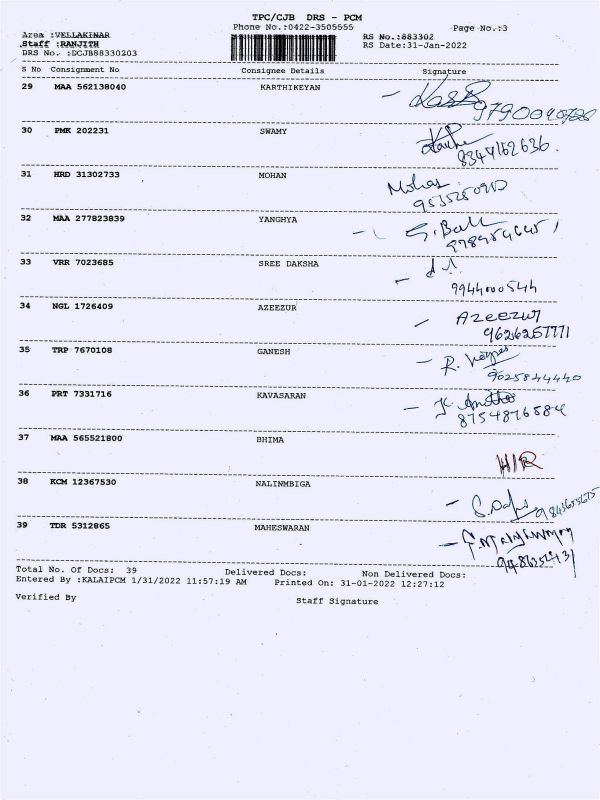 TPC/CJB DRS - PCM
Phone No.:0422-3505555 Page No.:3
Area :VELLAKINAR RS No.:883302
Staff :RANJITH RS Date:31-Jan-2022
DRS No. :DCJB88330203
S No Consignment No Consignee Details Signature
29 MAA 562138040 KARTHIKEYAN
30 PMK 202231 SWAMY
8344162636
31 HRD 31302733 MOHAN Mohan
32 MAA 277823839 YANGHYA
33 VRR 7023685 SREE DAKSHA
9944000544
34 NGL 1726409 AZEEZUR Azeezur
9626257771
35 TRP 7670108 GANESH
9025844440
36 PRT 7331716 KAVASARAN
8754876584
37 MAA 565521800 BHIMA
38 KCM 12367530 NALINMBIGA
39 TDR 5312865 MAHESWARAN
Total No. Of Docs: 39 Delivered Docs: Non Delivered Docs:
Entered By :KALAIPCM 1/31/2022 11:57:19 AM Printed On: 31-01-2022 12:27:12
Verified By Staff Signature